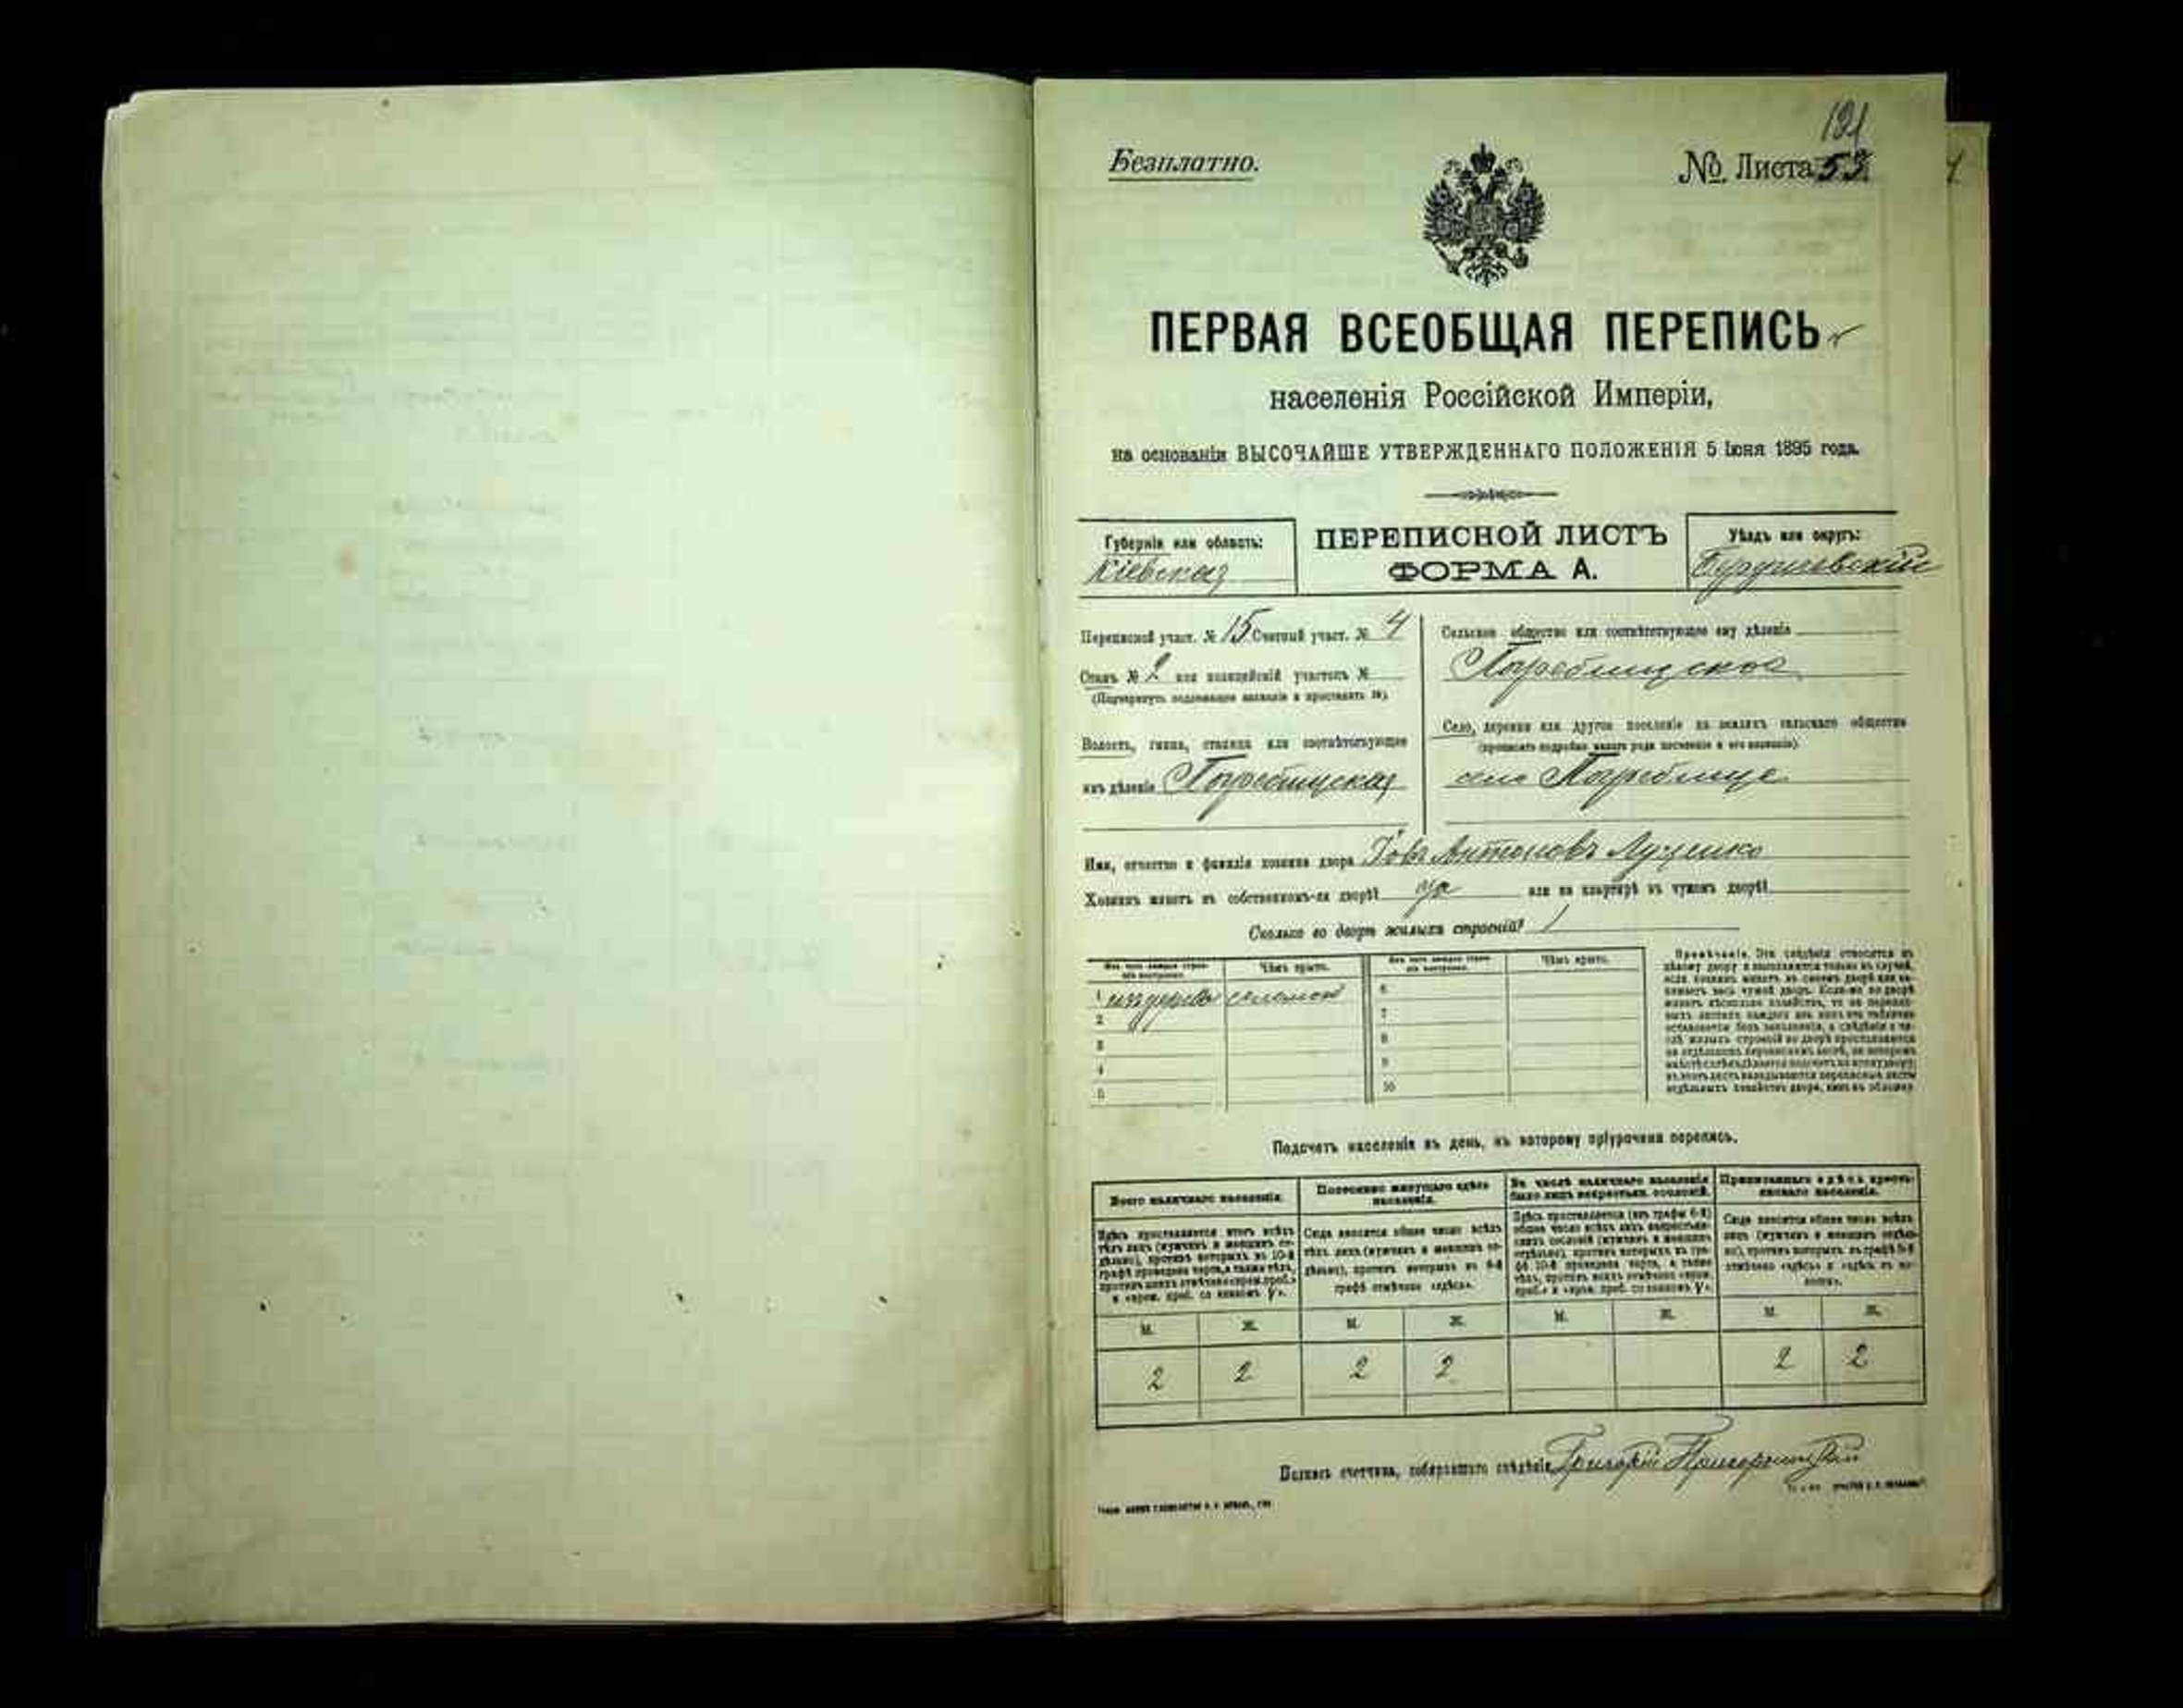 121
Безплатно.
№ Листа 53
ПЕРВАЯ ВСЕОБЩАЯ ПЕРЕПИСЬ
населенія Россійской Имперіи,
на основаніи ВЫСОЧАЙШЕ УТВЕРЖДЕННАГО ПОЛОЖЕНІЯ 5 Іюня 1895 года.
Губернія или область:
Кіевская
ПЕРЕПИСНОЙ ЛИСТЪ
ФОРМА А.
Уѣздъ или округъ:
Бердичевскій
Переписной участ. № 15 Счетный участ. № 4
Станъ № 2 или полицейскій участокъ №
(Подчеркнуть подлежащее названіе и проставить №).
Волость, гмина, станица или соотвѣтствующее
имъ дѣленіе Погребищская
Сельское общество или соотвѣтствующее ему дѣленіе
Погребищское
Село, деревня или другое поселеніе на земляхъ сельскаго общества
(прописать подробно какого рода поселеніе и его названіе).
село Погребище
Имя, отчество и фамилія хозяина двора Іовъ Антоновъ Луценко
Хозяинъ живетъ въ собственномъ-ли дворѣ? да или на квартирѣ въ чужомъ дворѣ?
Сколько во дворѣ жилыхъ строеній? 1
Изъ чего каждое строеніе построено. Чѣмъ крыто. Изъ чего каждое строеніе построено. Чѣмъ крыто.
1 изъ дерева соломой 6
2 7
3 8
4 9
5 10
Примѣчаніе. Эти свѣдѣнія относятся къ
цѣлому двору и заполняются только въ случаѣ,
если хозяинъ живетъ въ своемъ дворѣ или
Подсчетъ населенія въ день, къ которому пріурочена перепись.
Всего наличнаго населенія.
Постоянно живущаго здѣсь
населенія.
Въ числѣ наличнаго населенія
было лицъ некрестьян. сословій.
Приписаннаго здѣсь кресть-
янскаго населенія.
Здѣсь проставляется итогъ всѣхъ
тѣхъ лицъ (мужчинъ и женщинъ от-
дѣльно), противъ которыхъ въ 10-й
графѣ проведена черта, а также тѣхъ,
противъ коихъ отмѣчено «врем. преб.»
Сюда вносится общее число всѣхъ
тѣхъ лицъ (мужчинъ и женщинъ от-
дѣльно), противъ которыхъ въ 9-й
графѣ отмѣчено «здѣсь».
Здѣсь проставляется (изъ графы 6-й)
общее число всѣхъ лицъ некрестьян-
скихъ сословій (мужчинъ и женщинъ
отдѣльно), противъ которыхъ въ гра-
фѣ 10-й проведена черта, а также
Сюда вносится общее число всѣхъ
лицъ (мужчинъ и женщинъ отдѣль-
но), противъ которыхъ въ графѣ 8-й
М. Ж. М. Ж. М. Ж. М. Ж.
2 2 2 2 2 2
Подпись счетчика, собиравшаго свѣдѣнія Григорій